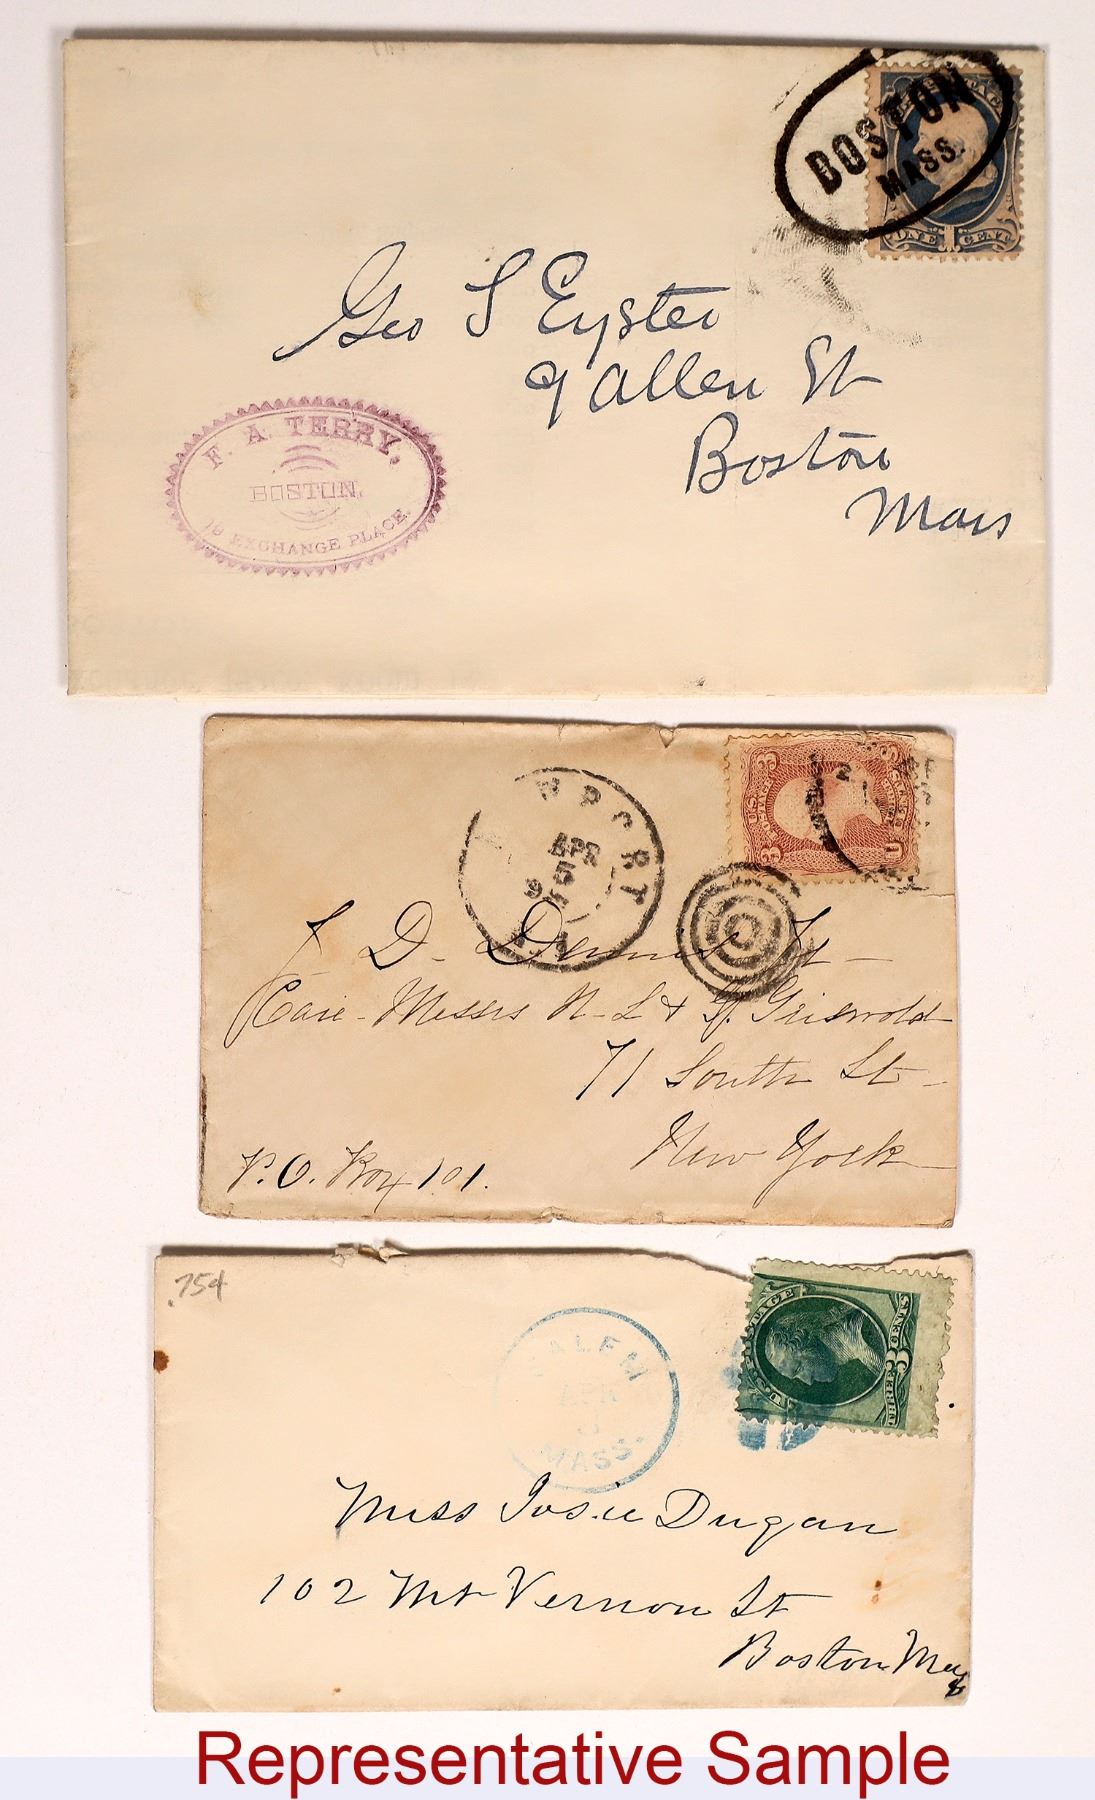 BOSTON
MASS.
U.S. POSTAGE
ONE 1 CENT
Geo S Eyster
9 Allen St
Boston
Mass
F. A. TERRY,
BOSTON,
19 EXCHANGE PLACE.
U.S. POSTAGE
3 3
WPORT
APR
5
J D Dennis Jr
Care Messrs N-L & G. Griswold
71 South St
New York
P.O. Box 101.
.754
SALEM
APR
MASS.
U.S. POSTAGE
THREE 3 CENTS
Miss Josie Dugan
102 Mt Vernon St
Boston Mass
Representative Sample